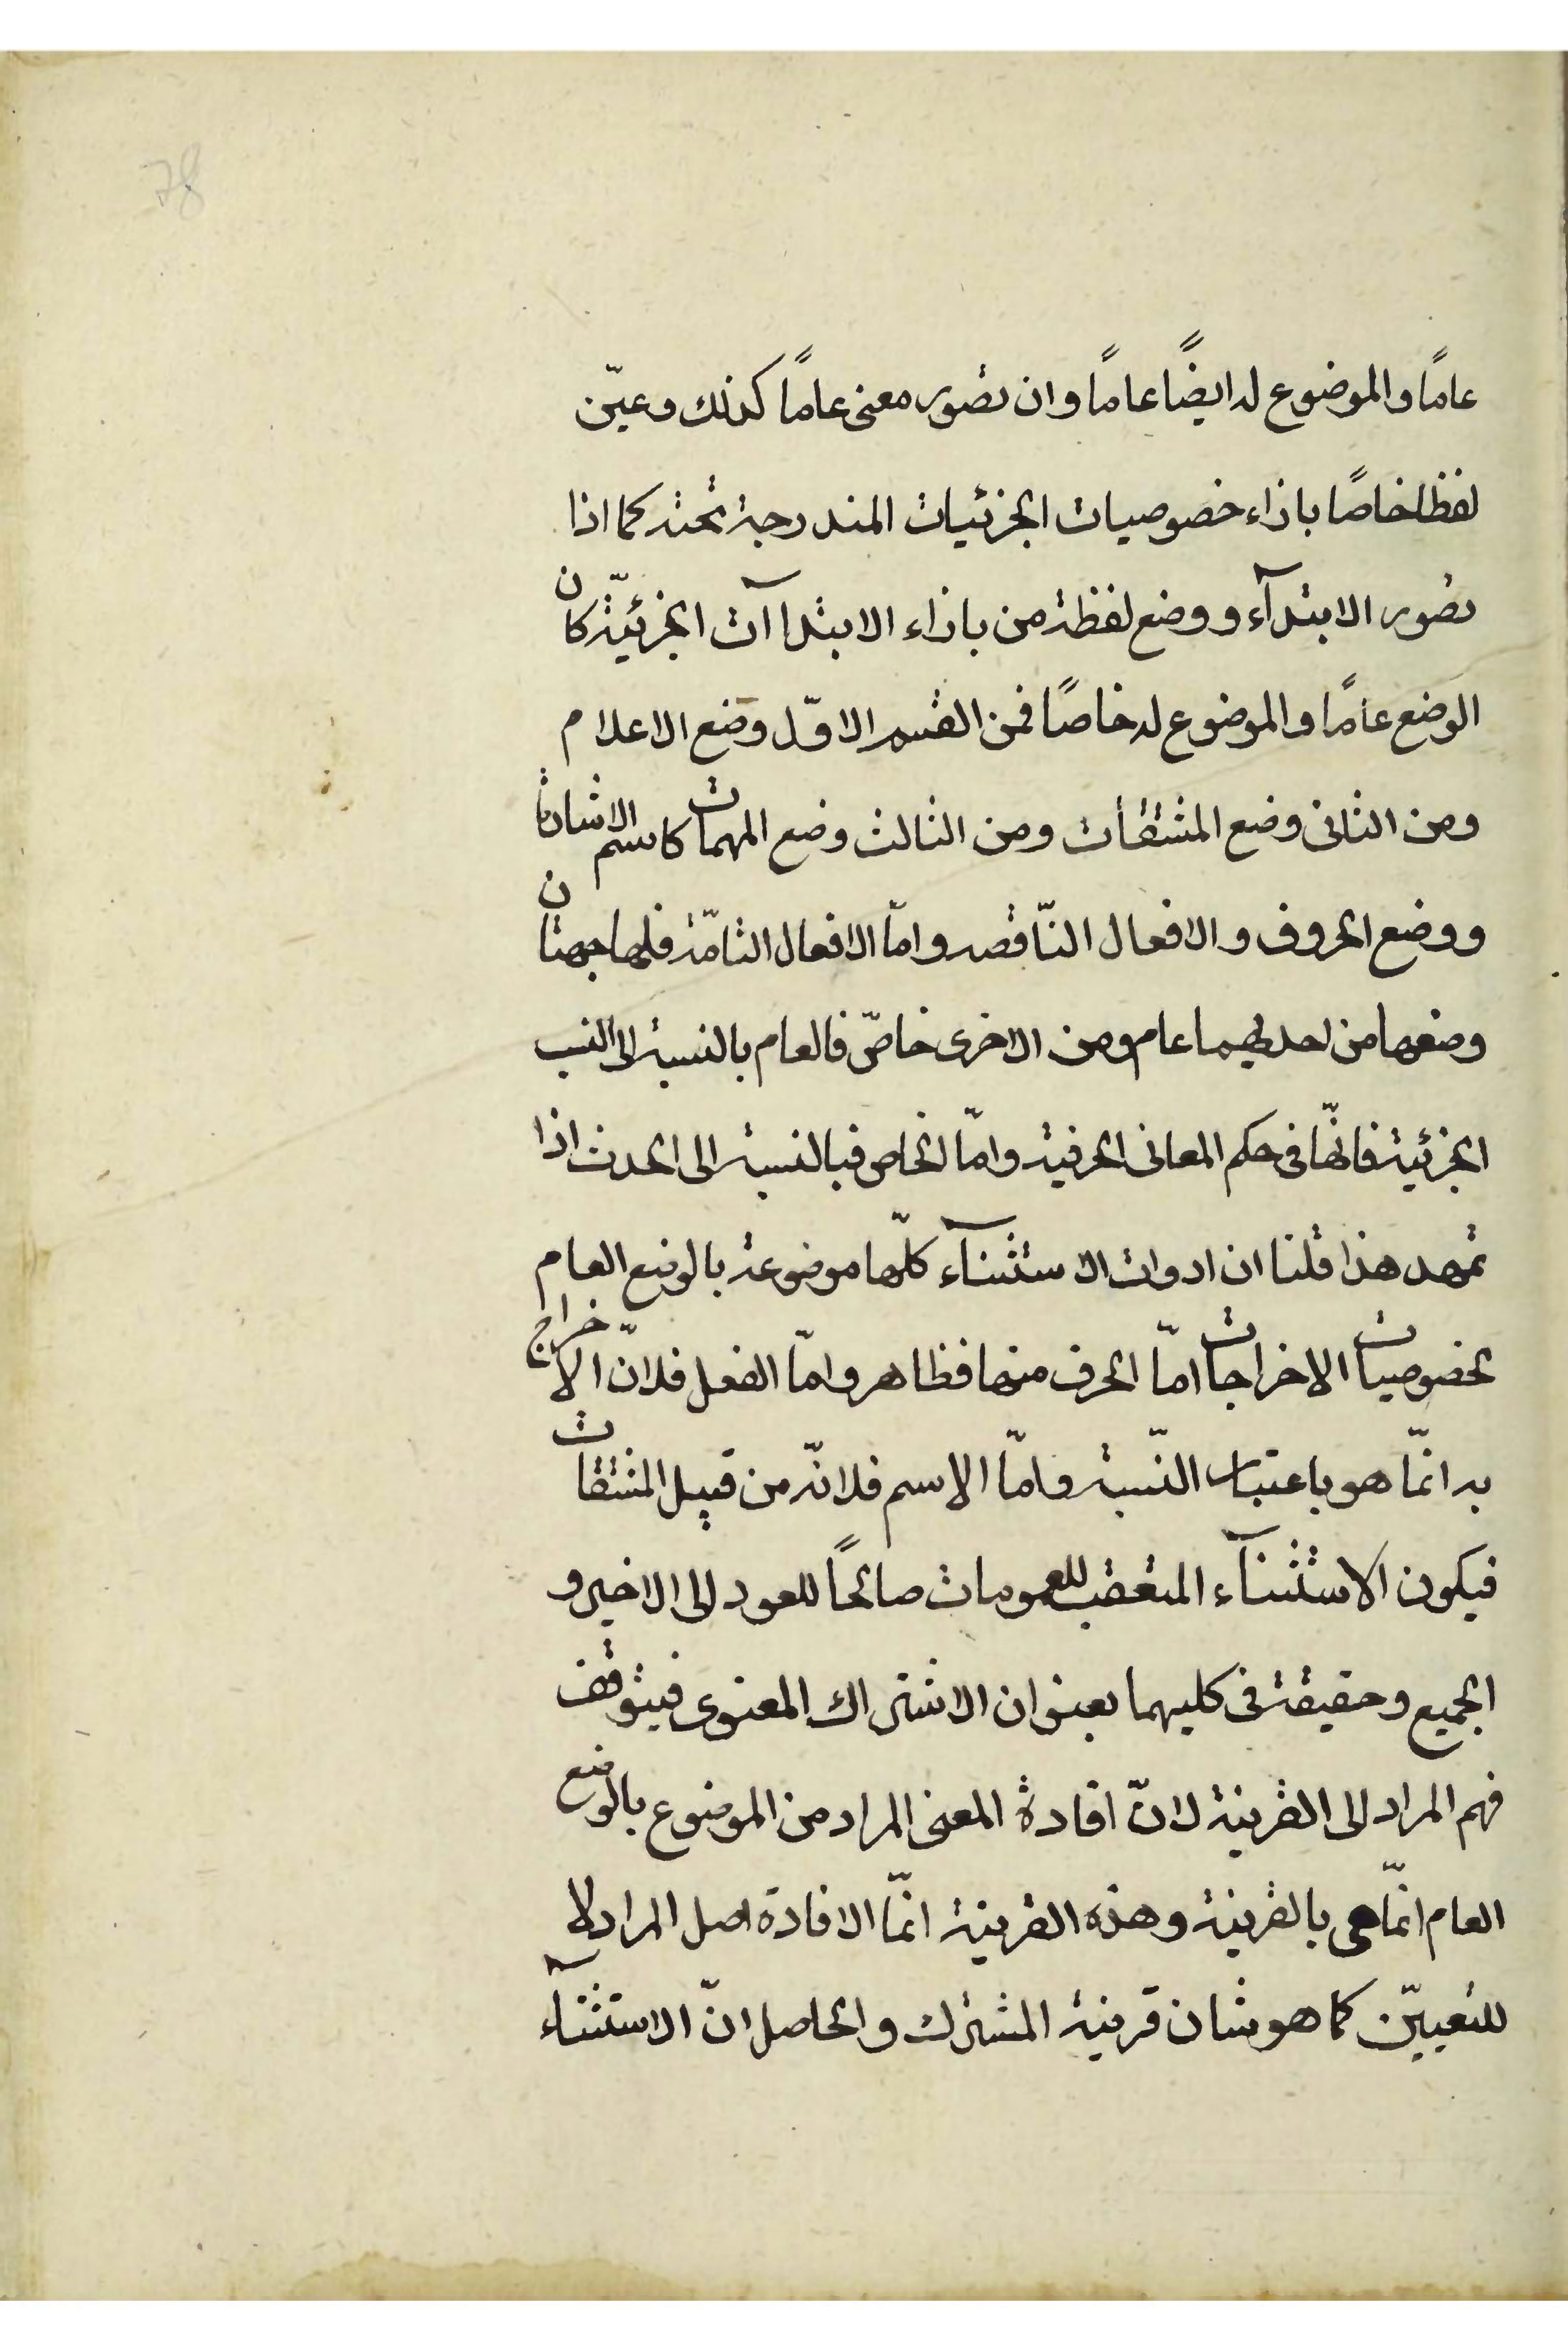 78
عامًا والموضوع له ايضًا عامًا وان تصور معنى عامًا كذلك وعيّن
لفظا خاصًا باذاء خصوصيات الجزئيات المندرجة تحته كما اذا
تصور الابتدآء ووضع لفظة من باذاء الابتداآت الجزئيّة كان
الوضع عامًا والموضوع له خاصًا فمن القسم الاوّل وضع الاعلام
ومن الثانى وضع المشتقات ومن الثالث وضع المبهمات كاسم الاشارة
ووضع الحروف والافعال النّاقصه وامّا الافعال التامّة فلها جهتان
وضعها من احديهما عام ومن الاخرى خاصّ فالعام بالنسبة الى النسب
الجزئية فانّها فى حكم المعانى الحرفية وامّا الخاص فبالنسبة الى الحدث اذا
تمهد هذا قلنا ان ادوات الاستثنآء كلّها موضوعة بالوضع العام
لخصوصيات الاخراجات امّا الحرف منها فظاهر وامّا الفعل فلانّ الاخراج
به انّما هو باعتبار النّسبة وامّا الاسم فلانّه من قبيل المشتقات
فيكون الاستثنآء المتعقب للعمومات صالحًا للعود الى الاخير و
الجميع وحقيقة فى كليهما بعنوان الاشتراك المعنوى فيتوقف
فهم المراد الى القرينة لانّ افادة المعنى المراد من الموضوع بالوضع
العام انّما هى بالقرينة وهذه القرينة انّما الافادة اصل المراد لا
للتعييّن كما هو شان قرينة المشترك والحاصل انّ الاستثنآء